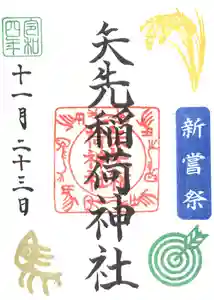 矢先稲荷神社
令和四年
十一月二十三日
新嘗祭